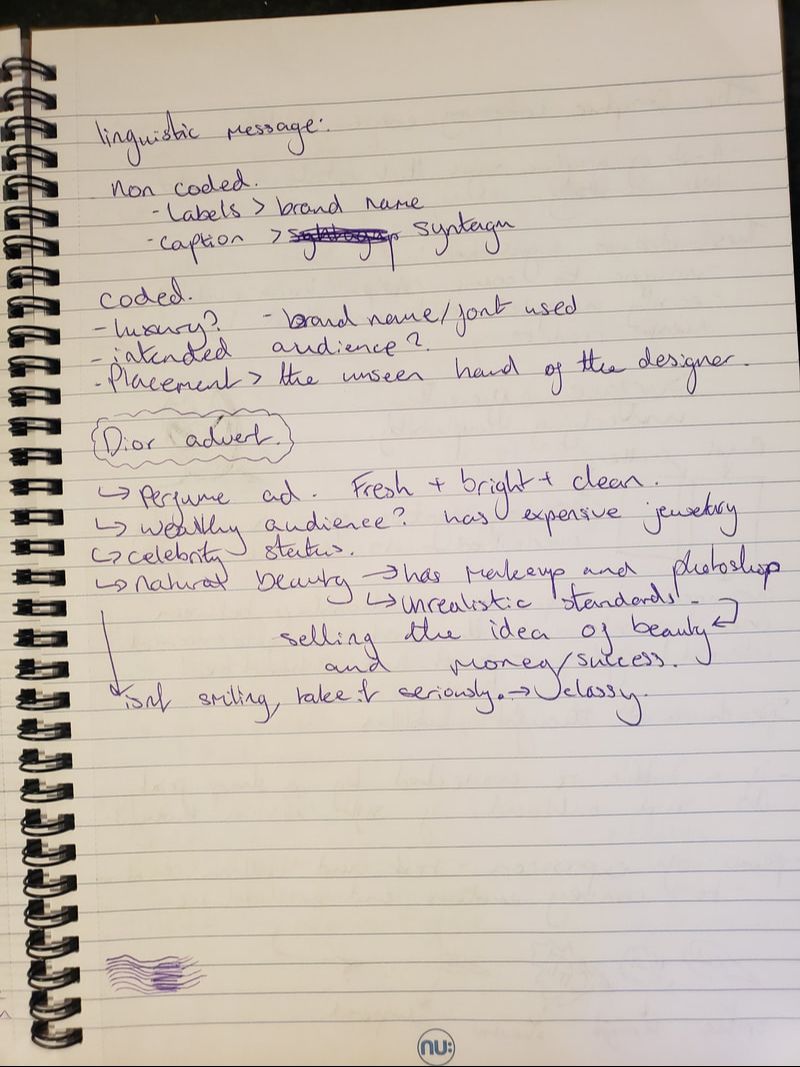 linguistic message:
non coded.
- Labels > brand name
- caption > syntagn
coded.
- luxury? - brand name/font used
- intended audience?
- Placement > the unseen hand of the designer.
Dior advert.
↳ Perfume ad. Fresh + bright + clean.
↳ wealthy audience? has expensive jewelary
↳ celebrity status.
↳ natural beauty → has makeup and photoshop
↳ unrealistic standards -
selling the idea of beauty
and money/success.
isnt smiling, take it seriously. → classy.
nu: